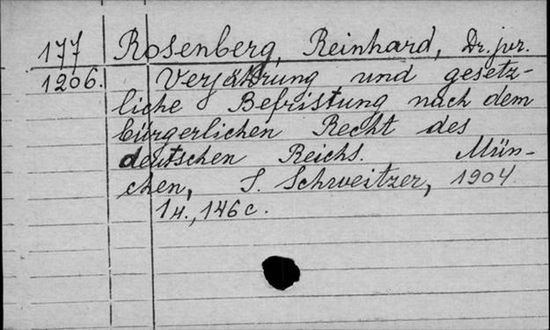 177 Rosenberg, Reinhard, Dr. jur.
1206. Verjährung und gesetz-
liche Befristung nach dem
bürgerlichen Recht des
deutschen Reichs. Mün-
chen, J. Schweitzer, 1904
1 н., 146 с.